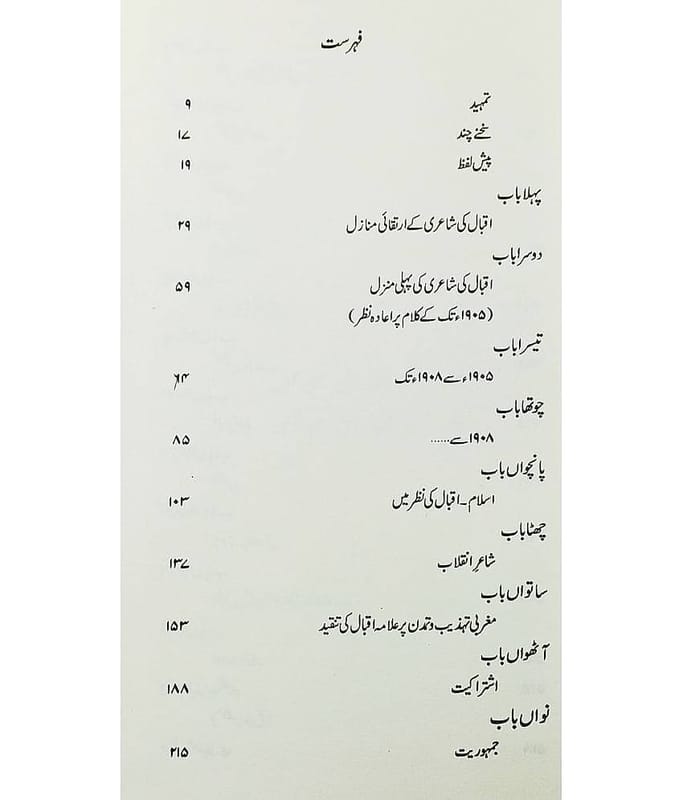 فہرست
تمہید ۹
سخنے چند ۱۷
پیش لفظ ۱۹
پہلا باب
اقبال کی شاعری کے ارتقائی منازل ۲۹
دوسرا باب
اقبال کی شاعری کی پہلی منزل ۵۹
(۱۹۰۵ء تک کے کلام پر اعادہ نظر)
تیسرا باب
۱۹۰۵ء سے ۱۹۰۸ء تک ۶۴
چوتھا باب
۱۹۰۸ سے...... ۸۵
پانچواں باب
اسلام ـ اقبال کی نظر میں ۱۰۳
چھٹا باب
شاعرِ انقلاب ۱۳۷
ساتواں باب
مغربی تہذیب و تمدن پر علامہ اقبال کی تنقید ۱۵۳
آٹھواں باب
اشتراکیت ۱۸۸
نواں باب
جمہوریت ۲۱۵